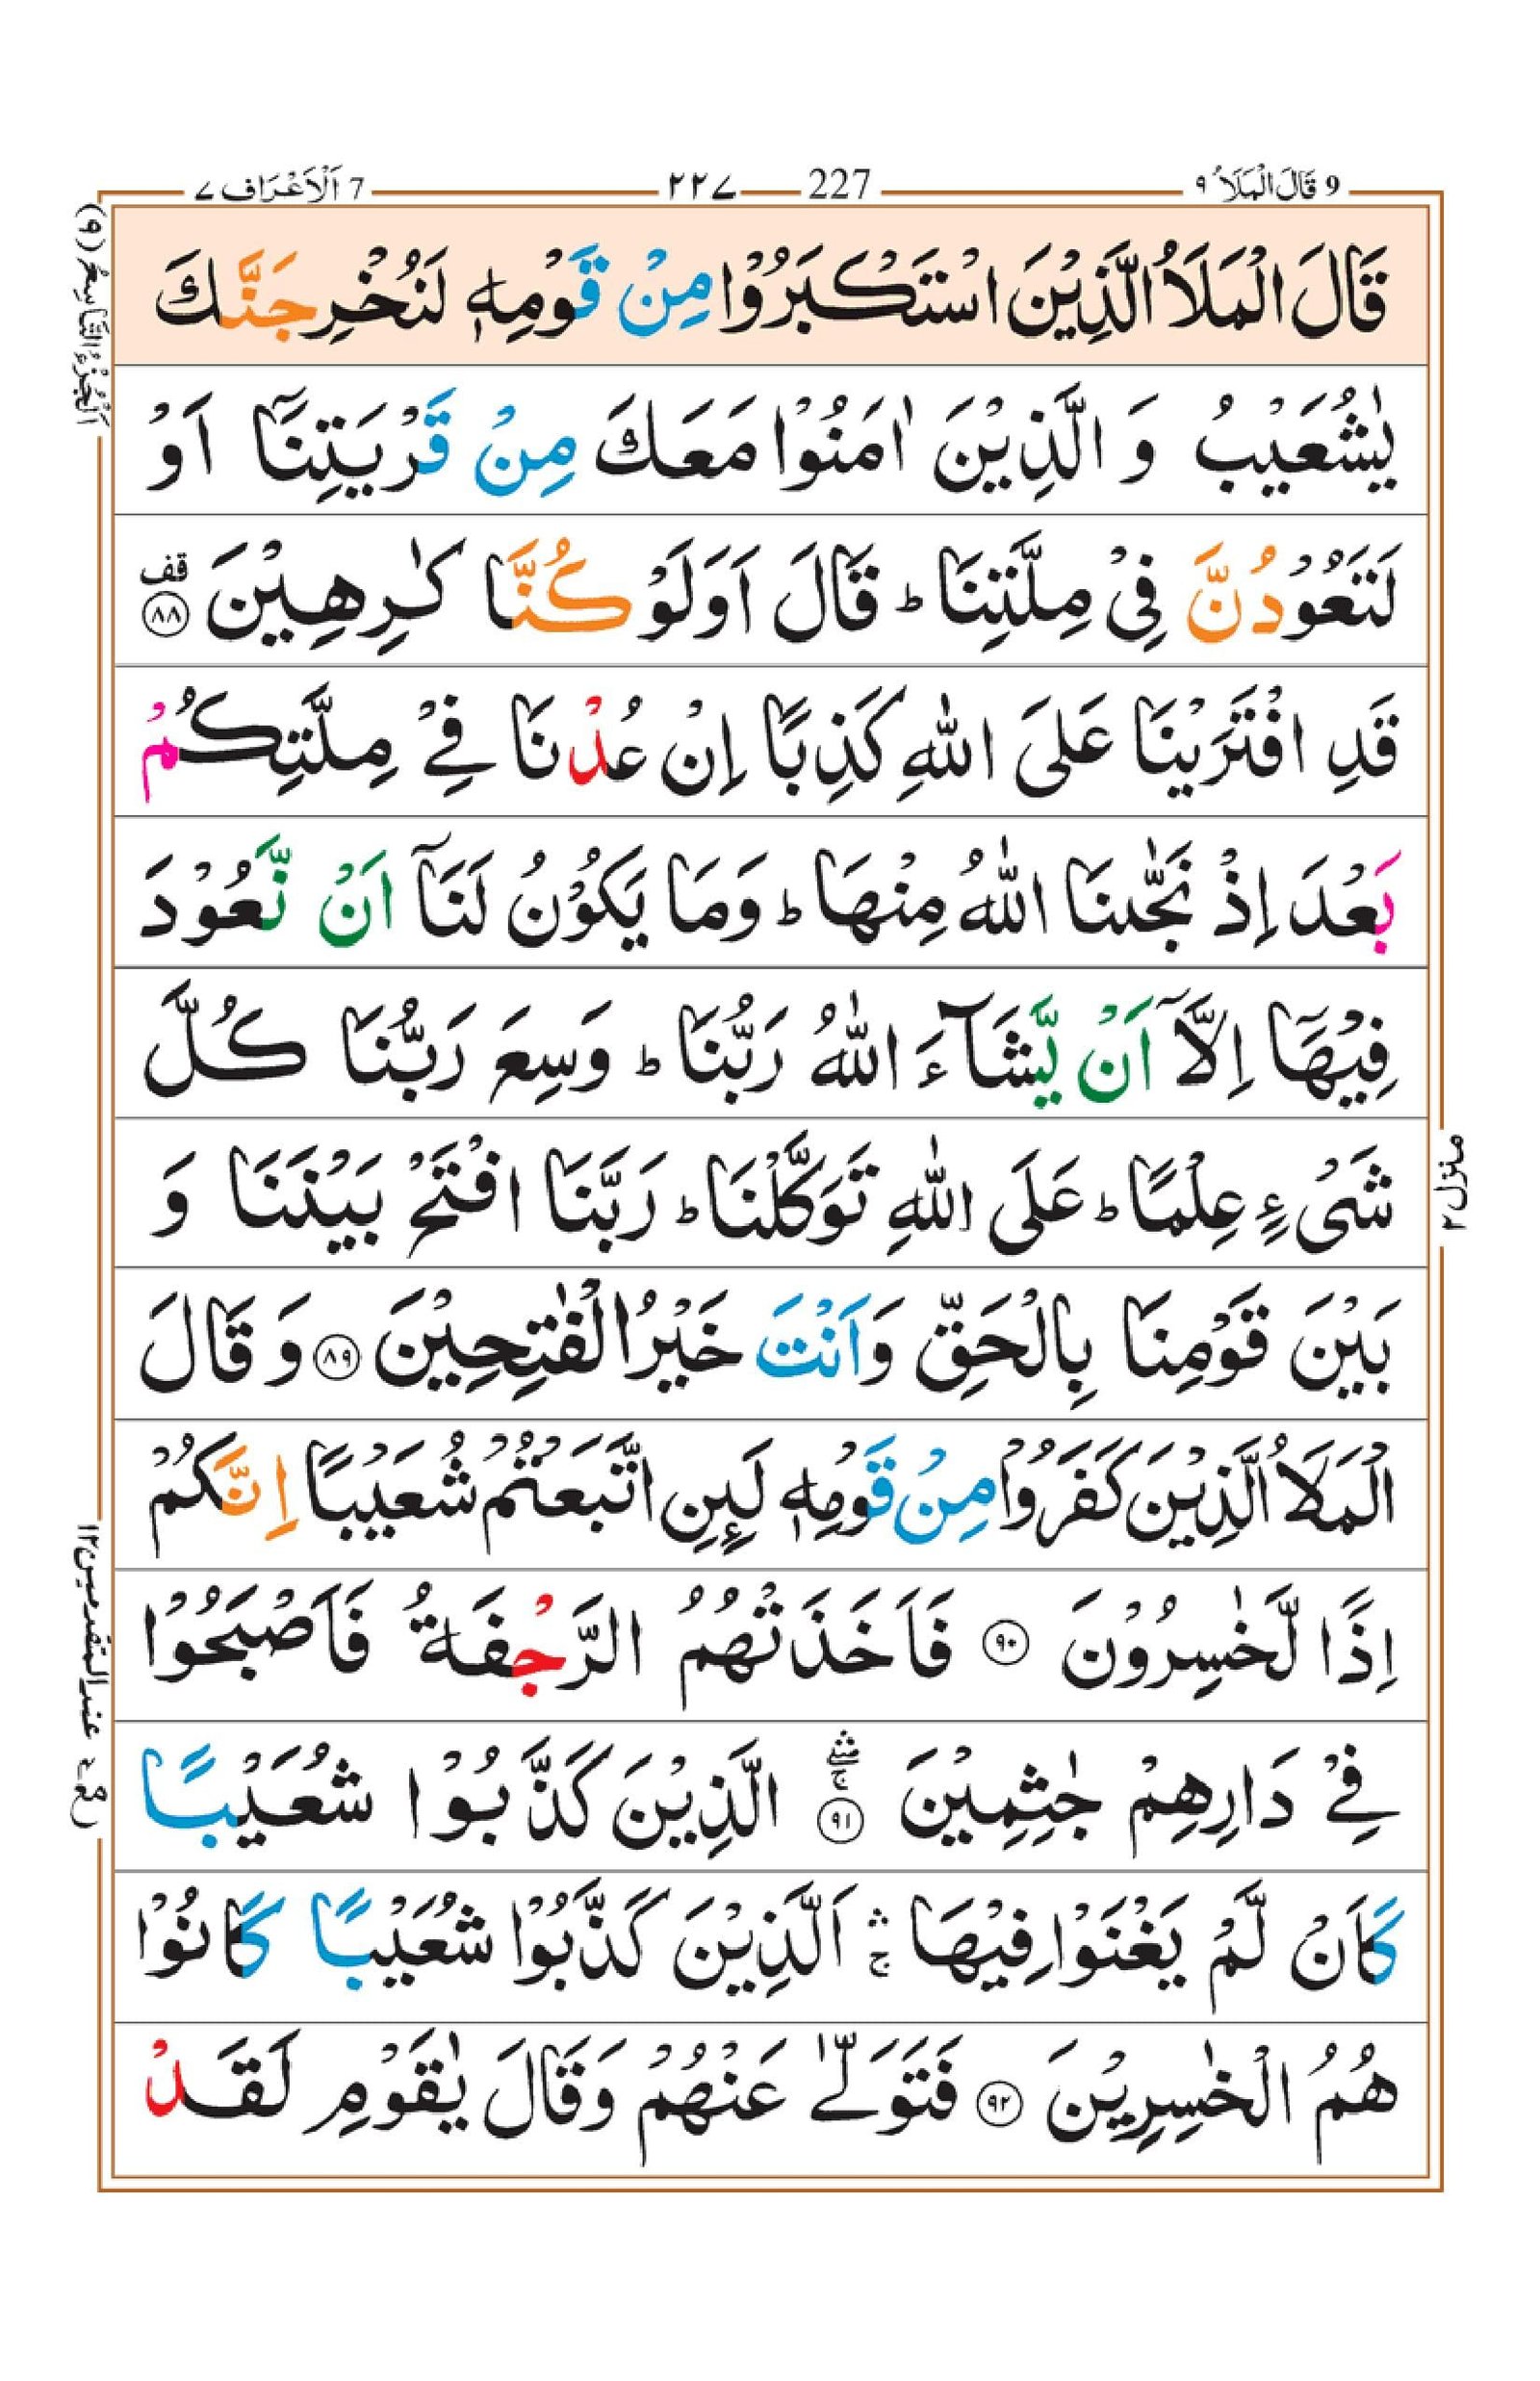 9 قَالَ الْمَلَاُ ٩ 227 ٢٢٧ 7 اَلْاَعْرَاف ٧
اَلْجُزْءُ التَّاسِعُ (٩)
قَالَ الْمَلَاُ الَّذِيْنَ اسْتَكْبَرُوْا مِنْ قَوْمِهٖ لَنُخْرِجَنَّكَ
يٰشُعَيْبُ وَ الَّذِيْنَ اٰمَنُوْا مَعَكَ مِنْ قَرْيَتِنَاۤ اَوْ
لَتَعُوْدُنَّ فِيْ مِلَّتِنَا ؕ قَالَ اَوَلَوْ كُنَّا كٰرِهِيْنَ ﴿٨٨﴾ قف
قَدِ افْتَرَيْنَا عَلَى اللّٰهِ كَذِبًا اِنْ عُدْنَا فِيْ مِلَّتِكُمْ
بَعْدَ اِذْ نَجّٰىنَا اللّٰهُ مِنْهَا ؕ وَمَا يَكُوْنُ لَنَاۤ اَنْ نَّعُوْدَ
فِيْهَاۤ اِلَّاۤ اَنْ يَّشَآءَ اللّٰهُ رَبُّنَا ؕ وَسِعَ رَبُّنَا كُلَّ
شَيْءٍ عِلْمًا ؕ عَلَى اللّٰهِ تَوَكَّلْنَا ؕ رَبَّنَا افْتَحْ بَيْنَنَا وَ
بَيْنَ قَوْمِنَا بِالْحَقِّ وَاَنْتَ خَيْرُ الْفٰتِحِيْنَ ﴿٨٩﴾ وَ قَالَ
الْمَلَاُ الَّذِيْنَ كَفَرُوْا مِنْ قَوْمِهٖ لَىِٕنِ اتَّبَعْتُمْ شُعَيْبًا اِنَّكُمْ
اِذًا لَّخٰسِرُوْنَ ﴿٩٠﴾ فَاَخَذَتْهُمُ الرَّجْفَةُ فَاَصْبَحُوْا
فِيْ دَارِهِمْ جٰثِمِيْنَ ﴿٩١﴾ ۛۚ الَّذِيْنَ كَذَّبُوْا شُعَيْبًا
كَاَنْ لَّمْ يَغْنَوْا فِيْهَا ۛۚ اَلَّذِيْنَ كَذَّبُوْا شُعَيْبًا كَانُوْا
هُمُ الْخٰسِرِيْنَ ﴿٩٢﴾ فَتَوَلّٰى عَنْهُمْ وَقَالَ يٰقَوْمِ لَقَدْ
منزل ٢
عند المتقدمين ١٢